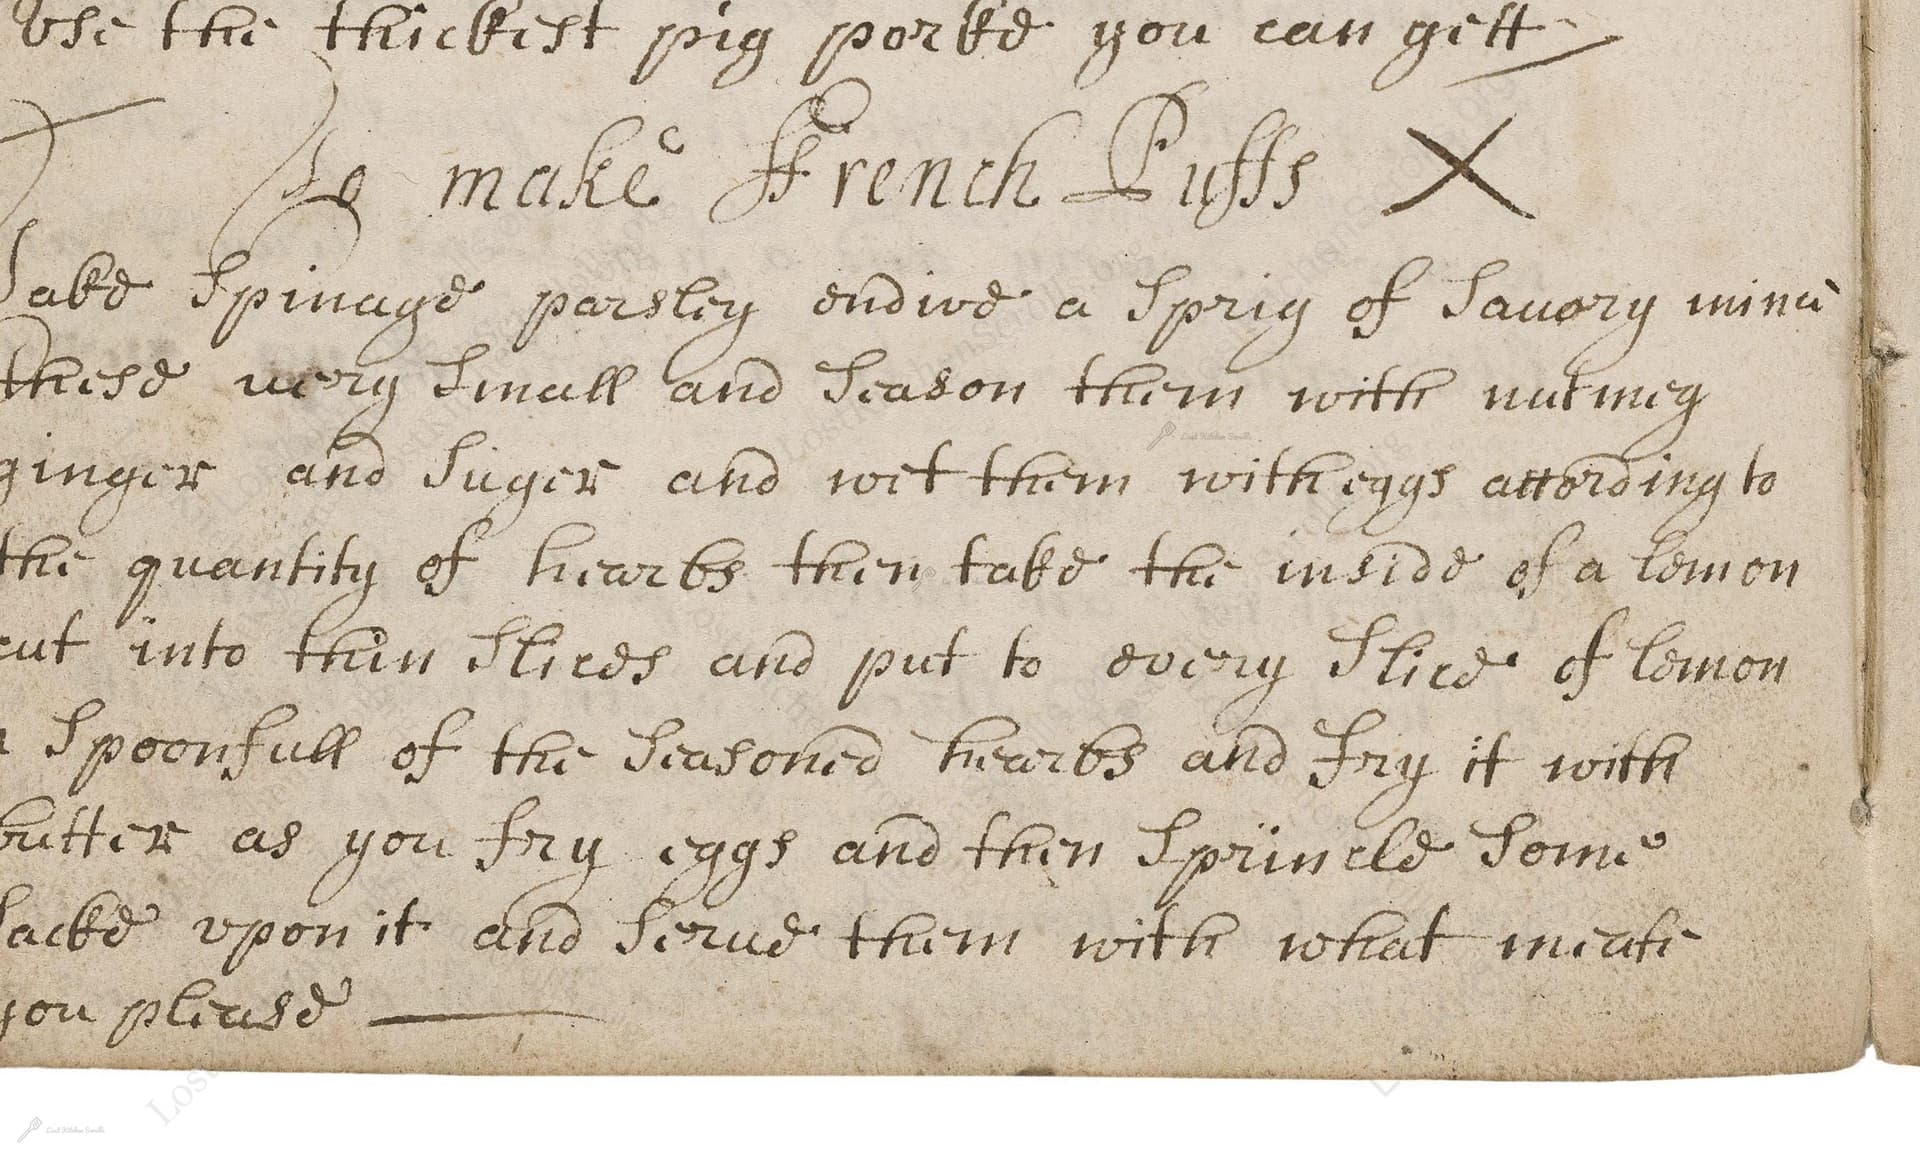 Vse the thickest pig porke you can gett
To make French Puffs X
Take Spinage parsley endive a Sprig of Sauory mince
these uery Small and Season them with nutmeg
ginger and Suger and wet them with eggs according to
the quantity of hearbs then take the inside of a lemon
cut into thin Slices and put to every Slice of lemon
a Spoonfull of the Seasoned hearbs and fry it with
butter as you fry eggs and then Sprincle Some
Sacke vpon it and Serue them with what meate
you please